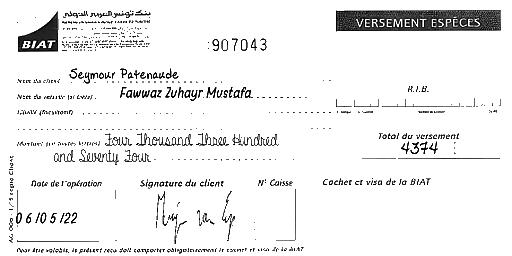 بنك تونس العربي الدولي
BIAT
VERSEMENT ESPÈCES
907043
Nom du client Seymour Patenaude
Fawwaz Zuhayr Mustafa
R.I.B.
Montant (en toutes lettres) Four Thousand Three Hundred
and Seventy Four
Total du versement
4374
Date de l'opération
Signature du client
N° Caisse
Cachet et visa de la BIAT
06/05/22
Pour être valable, le présent reçu doit comporter obligatoirement le cachet et visa de la BIAT